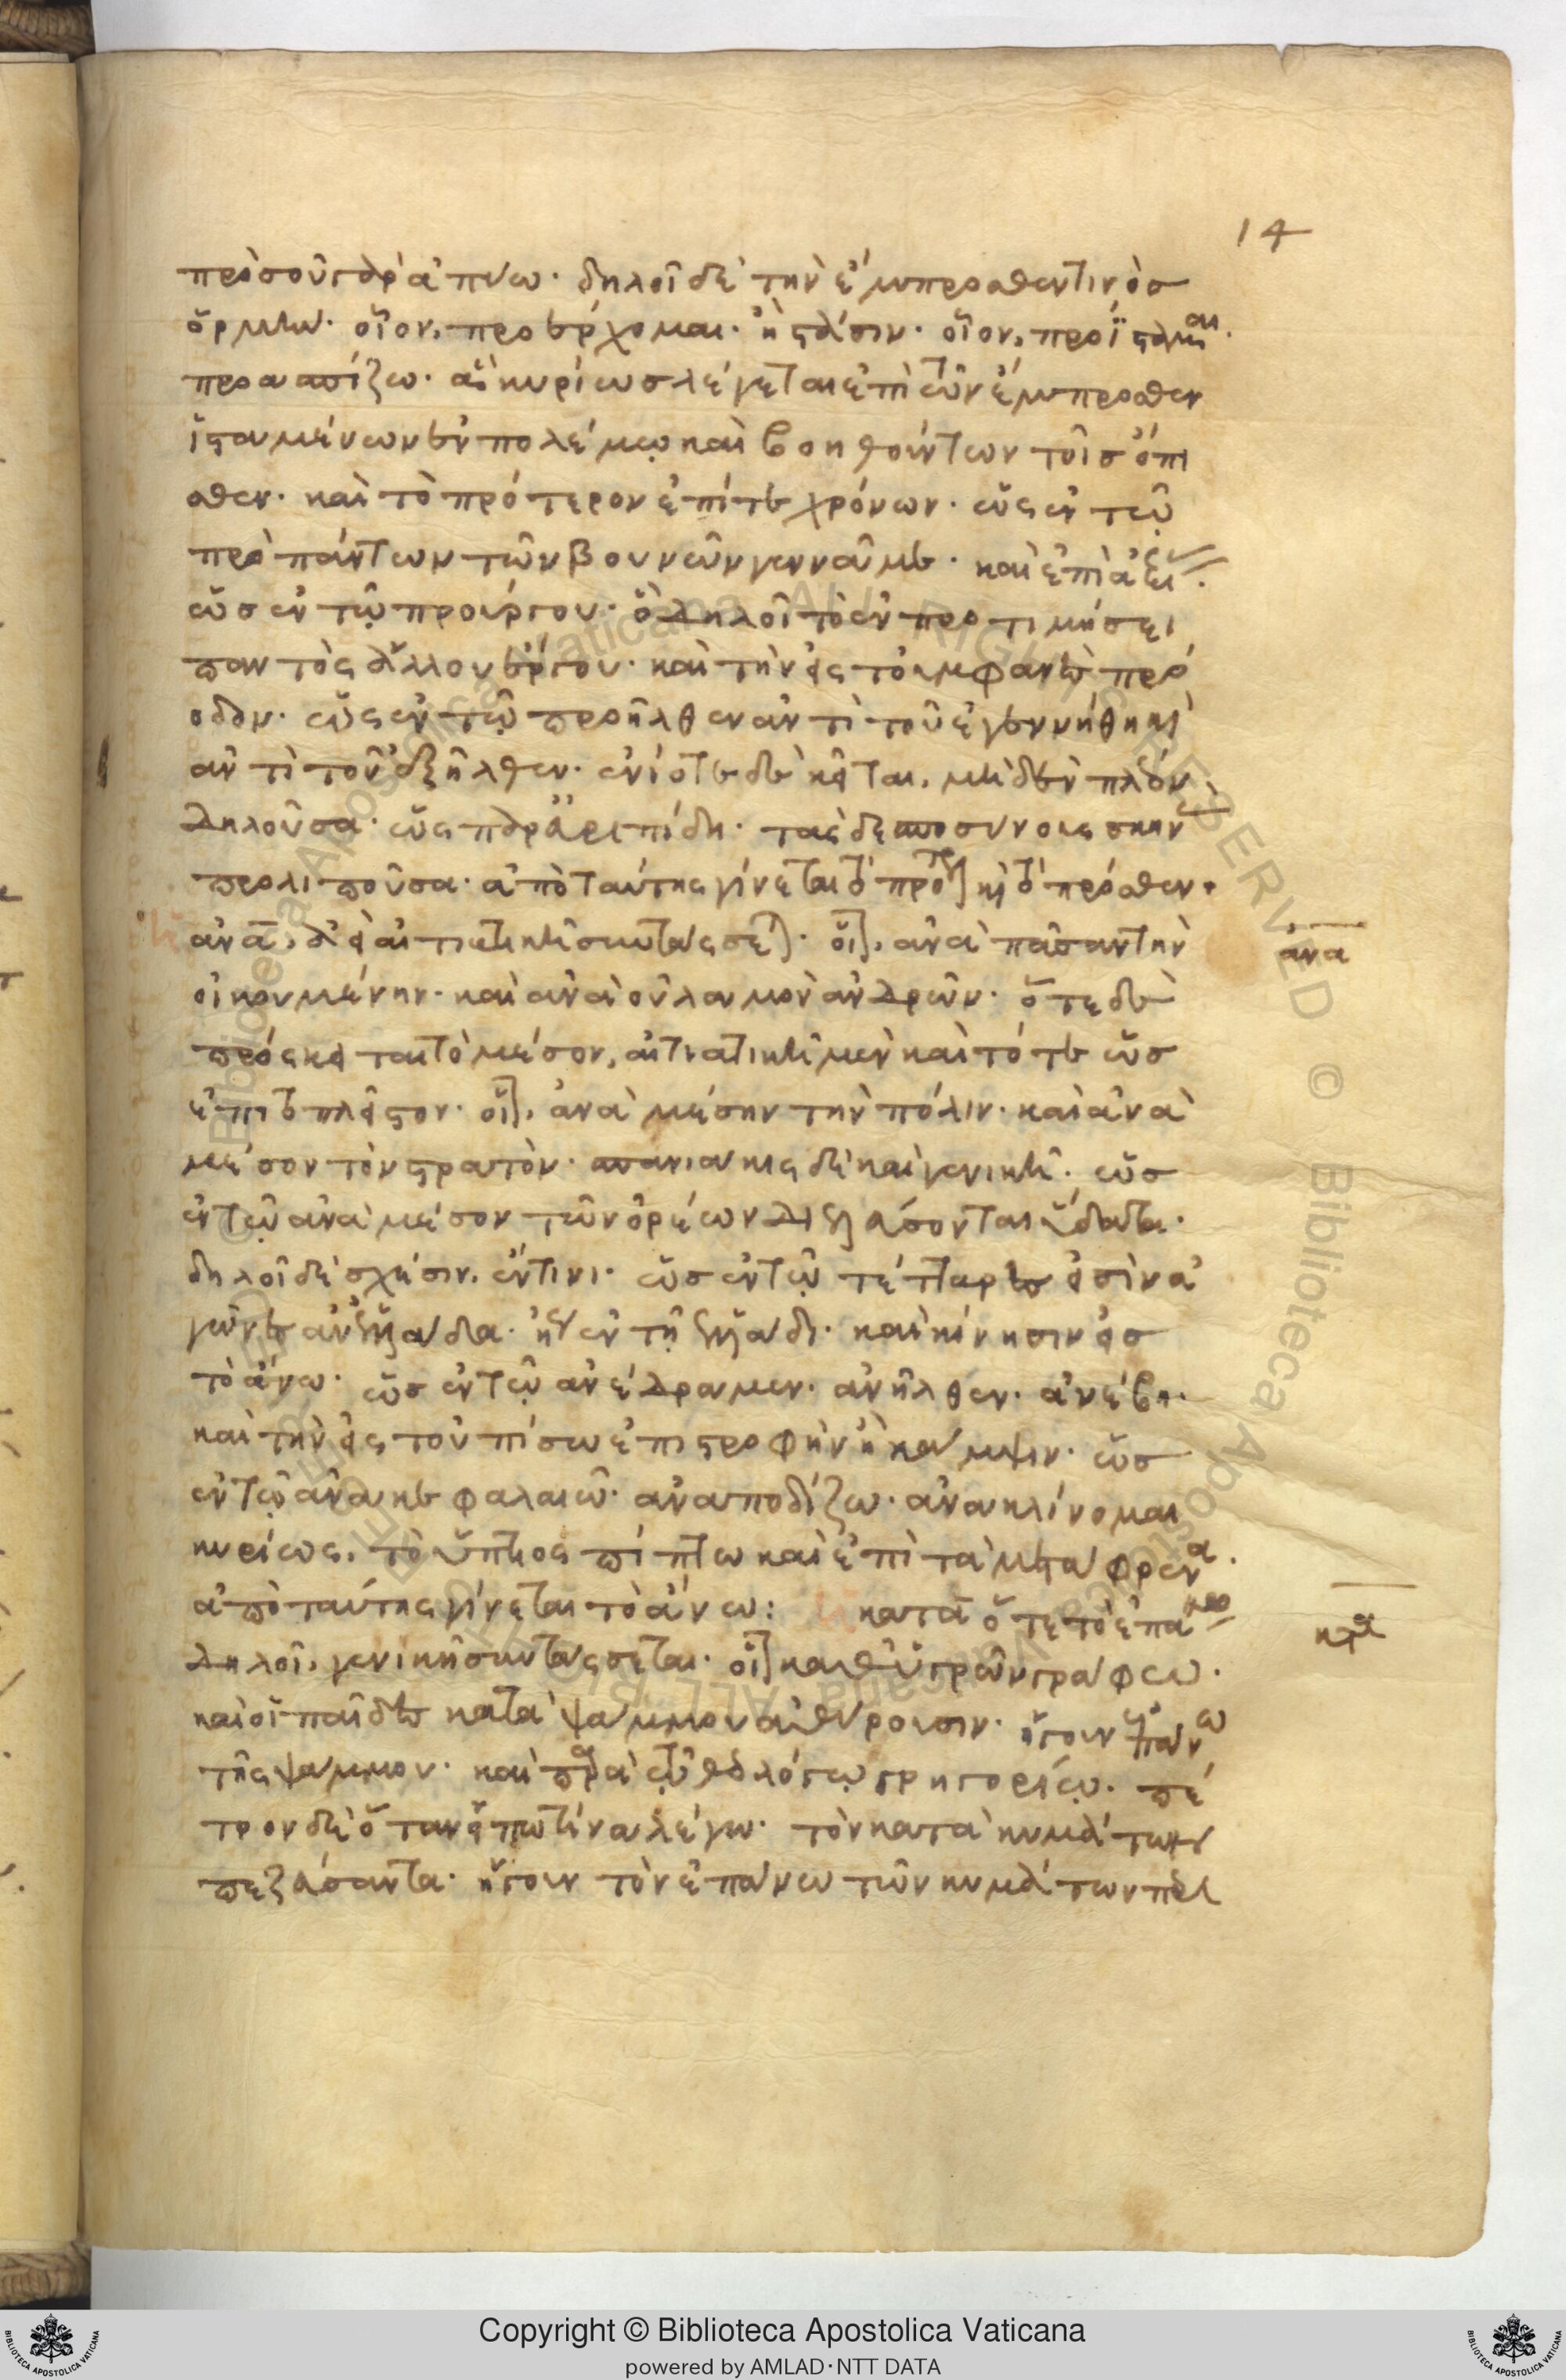 14
πρὸ σοῦ γὰρ ἄπνω. δηλοῖ δὲ τὴν ἔμπροσθέν τινος
ὁρμήν. οἷον, προέρχομαι. ἢ στάσιν. οἷον, προΐσταμαι.
προασπίζω. ἃ κυρίως λέγεται ἐπὶ τῶν ἔμπροσθεν
ἱσταμένων ἐν πολέμῳ καὶ βοηθούντων τοῖς ὄπι
σθεν. καὶ τὸ πρότερον ἐπί τε χρόνων. ὡς ἐν τῷ
πρὸ πάντων τῶν βουνῶν γεννᾷ με. καὶ ἐπὶ ἀξί
ὡς ἐν τῷ προύργου. ὃ δηλοῖ τὸ ἐν προτιμήσει
παντὸς ἄλλου ἔργου. καὶ τὴν εἰς τοὐμφανὲς πρό
οδον. ὡς ἐν τῷ προῆλθεν ἀντὶ τοῦ ἐγεννήθη καὶ
ἀντὶ τοῦ ἐξῆλθεν. ἐνίοτε δὲ κεῖται, μηδὲν πλέον
δηλοῦσα. ὡς παρ' Εὐριπίδη. τὰς δεσποσύνους σκην
προλιποῦσα. ἀπὸ ταύτης γίνεται τὸ πρότερον καὶ τὸ πρόσθεν.
ἀνὰ, ἀεὶ αἰτιατικῇ συντάσσεται. οἷον, ἀνὰ πᾶσαν τὴν
οἰκουμένην. καὶ ἀνὰ οὐλαμὸν ἀνδρῶν. ὅτε δὲ
πρόσκειται τὸ μέσον, αἰτιατικῇ μὲν καὶ τότε ὡς
ἐπὶ τὸ πλεῖστον. οἷον, ἀνὰ μέσην τὴν πόλιν. καὶ ἀνὰ
μέσον τὸν στρατόν. σπανιάκις δὲ καὶ γενικῇ. ὡς
ἐν τῷ ἀνὰ μέσον τῶν ὀρέων διελεύσονται ὕδατα.
δηλοῖ δὲ σχέσιν, ἔν τινι. ὡς ἐν τῷ τέτταρες εἰσὶν ἀ
γῶνες ἀν' Ἑλλάδα. ἤγουν ἐν τῇ Ἑλλάδι. καὶ κίνησιν εἰς
τὸ ἄνω. ὡς ἐν τῷ ἀνέδραμεν. ἀνῆλθεν. ἀνέβη.
καὶ τὴν εἰς τοὐπίσω ἐπιστροφὴν ἢ κάμψιν. ὡς
ἐν τῷ ἀνακεφαλαιῶ. ἀναποδίζω. ἀνακλίνομαι
κυρίως, τὸ ὕπτιος πίπτω καὶ ἐπὶ τὰ μετάφρενα.
ἀπὸ ταύτης γίνεται τὸ ἄνω: κατὰ ὅτε τὸ ἐπάνω
δηλοῖ, γενικῇ συντάσσεται. οἷον καθ' ὑγρῶν γράφω.
καὶ οἱ παῖδες κατὰ ψάμμου ἀθύρουσιν. ἤγουν ἐπάνω
τῆς ψάμμου. καὶ παρὰ τῷ θεολόγῳ γρηγορίῳ. πέ
τρον δὲ ὅταν εἴπω τίνα λέγω. τὸν κατὰ κυμάτων
πεζεύσαντα. ἤγουν τὸν ἐπάνω τῶν κυμάτων πε
ἀνὰ
κατὰ
Copyright © Biblioteca Apostolica Vaticana
powered by AMLAD·NTT DATA